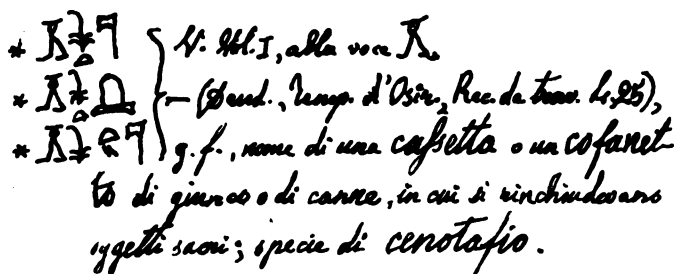 V. Vol. I, alla voce
— (Dend., Temp. d'Osir., Rec. de trav. 4,25),
g. f., nome di una cassetta o un cofanet-
to di giunco o di canne, in cui si rinchiudevano
oggetti sacri; specie di cenotafio.